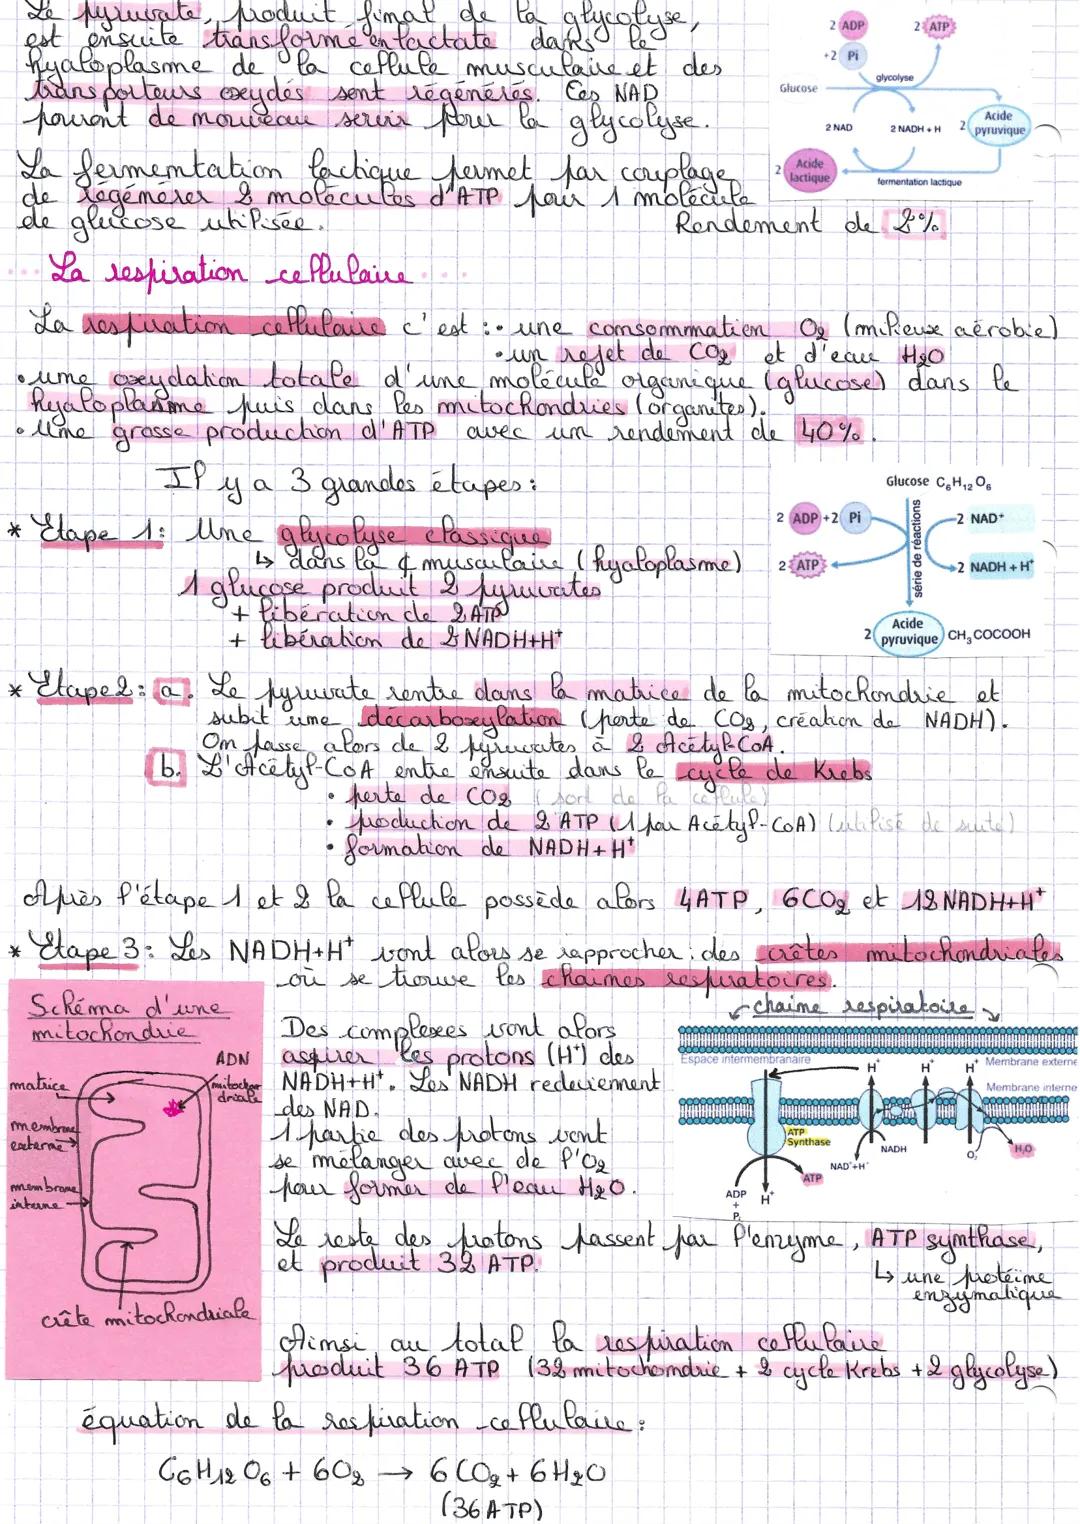 Le pyruvate, produit final de la glycolyse,
est ensuite transformé en lactate dans le
hyaloplasme de la cellule musculaire et des
transporteurs oxydés sont régénérés. Ces NAD
pouront de nouveau servir pour la glycolyse.
2 ADP
2 ATP
+2 Pi
glycolyse
Glucose
2 NAD
2 NADH + H
2 Acide pyruvique
2 Acide lactique
fermentation lactique
La fermentation lactique permet par couplage
de régénérer 2 molécules d'ATP pour 1 molécule
de glucose utilisée.
Rendement de 2%
La respiration cellulaire
La respiration cellulaire c'est : • une consommation O2 (milieux aérobie)
• un rejet de CO2 et d'eau H2O
• une oxydation totale d'une molécule organique (glucose) dans le
hyaloplasme puis dans les mitochondries (organites).
• Une grosse production d'ATP avec un rendement de 40%.
Il y a 3 grandes étapes :
* Etape 1 : Une glycolyse classique
↳ dans la ¢ musculaire (hyaloplasme)
1 glucose produit 2 pyruvates
+ libération de 2 ATP
+ libération de 2 NADH+H+
Glucose C6H12O6
2 ADP + 2 Pi
2 NAD+
série de réactions
2 ATP
2 NADH + H+
2 Acide pyruvique CH3COCOOH
* Etape 2 : a. Le pyruvate rentre dans la matrice de la mitochondrie et
subit une décarboxylation (perte de CO2, création de NADH).
On passe alors de 2 pyruvates à 2 Acétyl-CoA.
b. L'Acétyl-CoA entre ensuite dans le cycle de Krebs
• perte de CO2 (sort de la cellule)
• production de 2 ATP (1 par Acétyl-CoA) (utilisé de suite)
• formation de NADH+H+
Après l'étape 1 et 2 la cellule possède alors 4ATP, 6CO2 et 12 NADH+H+
* Etape 3 : Les NADH+H+ vont alors se rapprocher : des crêtes mitochondriales
où se trouve les chaines respiratoires.
Schéma d'une
mitochondrie
ADN
mitochon
driale
matrice
membrane
externe
membrane
interne
crête mitochondriale
Des complexes vont alors
aspirer les protons (H+) des
NADH+H+. Les NADH redeviennent
des NAD.
1 partie des protons vont
se mélanger avec de l'O2
pour former de l'eau H2O.
chaine respiratoire
Espace intermembranaire
H+
H+
H+
Membrane externe
Membrane interne
ATP
Synthase
NADH
NAD+H+
O2
H2O
ATP
ADP
+
Pi
H+
Le reste des protons passent par l'enzyme, ATP synthase,
et produit 32 ATP.
↳ une protéine
enzymatique
Ainsi au total la respiration cellulaire
produit 36 ATP (32 mitochondrie + 2 cycle Krebs + 2 glycolyse)
équation de la respiration cellulaire :
C6H12O6 + 6O2 → 6CO2 + 6H2O
(36 ATP)